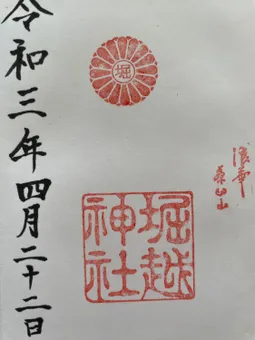 浪華
茶臼山
堀
堀越
神社
令和三年四月二十二日